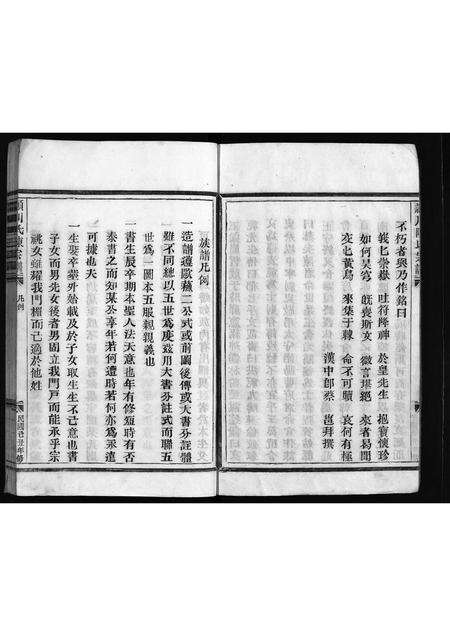 不朽者與乃作銘曰
巍巍崇嶽 吐符降神 於皇先生 抱寶懷珍
如何昊穹 既喪斯文 微言堙絕 來者曷聞
交交黃鳥 爰集于棘 命不可贖 哀何有極
漢中郎蔡 邕拜撰
族譜凡例
一造譜遵歐蘇二公式或前圖後傳或大書分註體
雖不同總以五世為度茲用大書分註式而聯五
世為一圖本五服親親義也
一書生辰卒期本聖人法天意也年有修短時有否
泰書之而知某公享年若何遭時若何亦為來遠
可據也夫
一生娶卒葬外始載及於子女取生生不已意也書
子女而男先女後者男固立我門戶而能承乎宗
祧女雖耀我門楣而已適於他姓
凡例